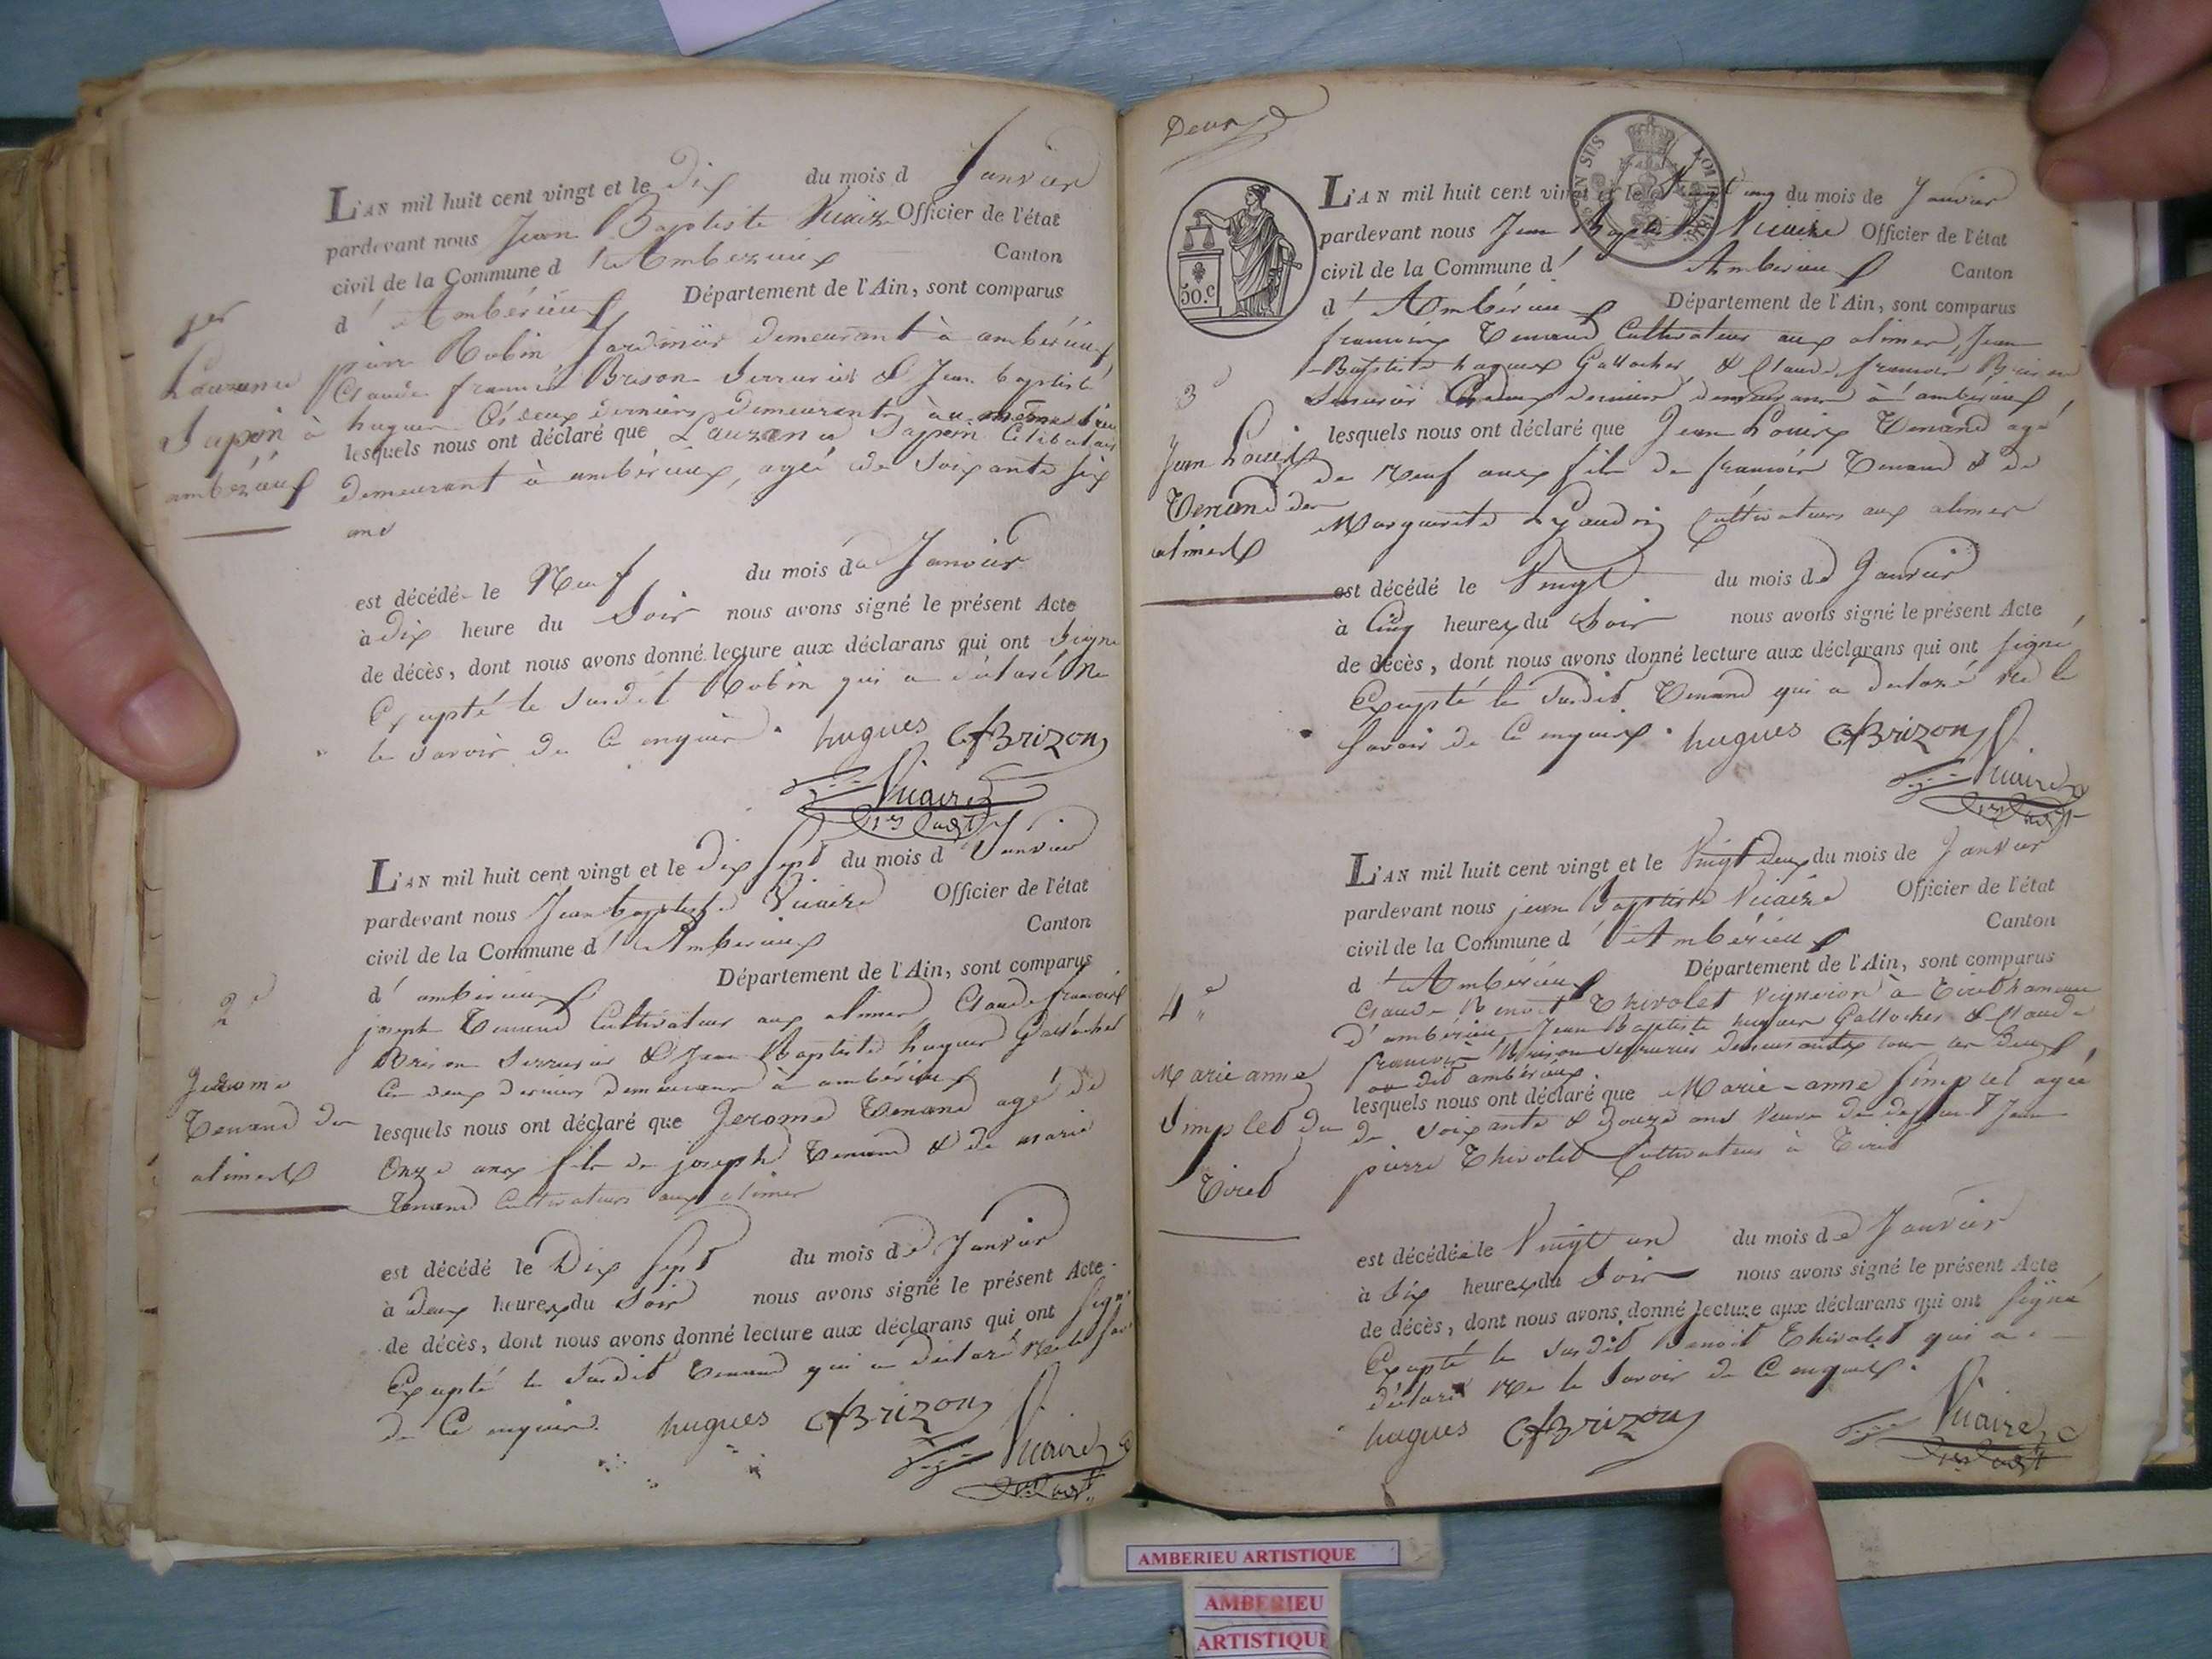 L'AN mil huit cent vingt et le dix du mois d Janvier
pardevant nous Jean Baptiste Vicaire Officier de l'état
civil de la Commune d' Ambérieux Canton
d' Ambérieux Département de l'Ain, sont comparus
pierre Robin Jardinier demeurant à ambérieux
Claude francois Brison Serrurier & Jean baptiste
hugues Ces deux derniers demeurants au même lieu
lesquels nous ont déclaré que Lauzanne Sapin Celibataire
demeurant à ambérieux, agée de Soixante six
ans
est décédé le Neuf du mois de Janvier
à Dix heure du Soir nous avons signé le présent Acte
de décès, dont nous avons donné lecture aux déclarans qui ont Signé
Excepté le Susdit Robin qui a déclaré Ne
le Savoir de Ce enquis. hugues CfBrizon
Vicaire
1er
Sapin à
ambérieux
L'AN mil huit cent vingt et le dix Sept du mois d Janvier
pardevant nous Jean baptiste Vicaire Officier de l'état
civil de la Commune d' Ambérieux Canton
d' ambérieux Département de l'Ain, sont comparus
joseph Tenand Cultivateur aux alimes Claude francois
Brison Serrurier & Jean Baptiste hugues Gallocher
Ces deux derniers demeurans à ambérieux
lesquels nous ont déclaré que Jerome Tenand agé de
Onze ans fils de joseph Tenand & de marie
Tenand Cultivateurs aux alimes
est décédé le Dix Sept du mois de Janvier
à deux heures du Soir nous avons signé le présent Acte
de décès, dont nous avons donné lecture aux déclarans qui ont Signé
Excepté le Susdit Tenand qui a déclaré Ne le Savoir
de Ce enquis. hugues CfBrizon
Vicaire
2e
Jerome
Tenand des
alimes
Deux
50.c
L'AN mil huit cent vingt et le Vingt un du mois de Janvier
pardevant nous Jean Baptiste Vicaire Officier de l'état
civil de la Commune d' Ambérieux Canton
d' Ambérieux Département de l'Ain, sont comparus
francois Tenand Cultivateur aux alimes, Jean
Baptiste hugues Gallocher & Claude francois Brison
Serrurier Ces deux derniers demeurans à ambérieux,
lesquels nous ont déclaré que Jean Louis Tenand agé
de Neuf ans fils de francois Tenand & de
Marguerite Cultivateurs aux alimes
est décédé le Vingt du mois de Janvier
à Cinq heures du Soir nous avons signé le présent Acte
de décès, dont nous avons donné lecture aux déclarans qui ont Signé
Excepté le Susdit Tenand qui a déclaré Ne le
Savoir de Ce enquis. hugues CfBrizon
Vicaire
3e
Jean Louis
Tenand des
alimes
L'AN mil huit cent vingt et le Vingt deux du mois de Janvier
pardevant nous jean Baptiste Vicaire Officier de l'état
civil de la Commune d' Ambérieux Canton
d' Ambérieux Département de l'Ain, sont comparus
Claude Benoit Thivolet Vigneron à Tiret hameau
d'ambérieux, Jean Baptiste hugues Gallocher & Claude
francois Brison Serrurier demeurants tous les deux
au dit ambérieux.
lesquels nous ont déclaré que Marie-anne Simplet agée
de Soixante & Douze ans Veuve de deffunt Jean
pierre Thivolet Cultivateur à Tiret
est décédée le Vingt un du mois de Janvier
à Six heures du Soir nous avons signé le présent Acte
de décès, dont nous avons donné lecture aux déclarans qui ont Signé
Excepté le Susdit Benoit Thivolet qui a
déclaré Ne le Savoir de Ce enquis.
hugues CfBrizon Vicaire
4e
Marie anne
Simplet de
Tiret
AMBERIEU ARTISTIQUE
AMBERIEU
ARTISTIQUE